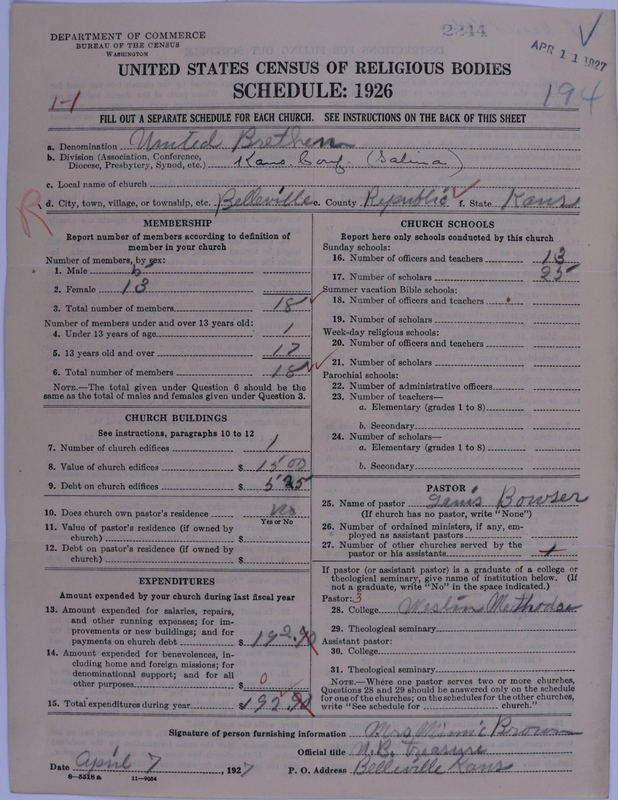 2244
DEPARTMENT OF COMMERCE
BUREAU OF THE CENSUS
WASHINGTON
APR 11 1927
UNITED STATES CENSUS OF RELIGIOUS BODIES
SCHEDULE: 1926
1-1
194
FILL OUT A SEPARATE SCHEDULE FOR EACH CHURCH. SEE INSTRUCTIONS ON THE BACK OF THIS SHEET
a. Denomination United Brethern
b. Division (Association, Conference, Diocese, Presbytery, Synod, etc.) Kans. Conf. (Salina)
c. Local name of church
R
d. City, town, village, or township, etc. Belleville e. County Republic f. State Kans
MEMBERSHIP
Report number of members according to definition of
member in your church
Number of members, by sex:
1. Male 5
2. Female 13
3. Total number of members 18
Number of members under and over 13 years old:
4. Under 13 years of age 1
5. 13 years old and over 17
6. Total number of members 18
NOTE.—The total given under Question 6 should be the
same as the total of males and females given under Question 3.
CHURCH BUILDINGS
See instructions, paragraphs 10 to 12
7. Number of church edifices 1
8. Value of church edifices $ 1500
9. Debt on church edifices $ 525
10. Does church own pastor's residence No
Yes or No
11. Value of pastor's residence (if owned by
church) $
12. Debt on pastor's residence (if owned by
church) $
EXPENDITURES
Amount expended by your church during last fiscal year
13. Amount expended for salaries, repairs,
and other running expenses; for im-
provements or new buildings; and for
payments on church debt $ 192.90
14. Amount expended for benevolences, in-
cluding home and foreign missions; for
denominational support; and for all
other purposes $ 0
15. Total expenditures during year $ 192.90
CHURCH SCHOOLS
Report here only schools conducted by this church
Sunday schools:
16. Number of officers and teachers 13
17. Number of scholars 25
Summer vacation Bible schools:
18. Number of officers and teachers
19. Number of scholars
Week-day religious schools:
20. Number of officers and teachers
21. Number of scholars
Parochial schools:
22. Number of administrative officers
23. Number of teachers—
a. Elementary (grades 1 to 8)
b. Secondary
24. Number of scholars—
a. Elementary (grades 1 to 8)
b. Secondary
PASTOR
25. Name of pastor Bowser
(If church has no pastor, write "None")
26. Number of ordained ministers, if any, em-
ployed as assistant pastors
27. Number of other churches served by the
pastor or his assistants 1
If pastor (or assistant pastor) is a graduate of a college or
theological seminary, give name of institution below. (If
not a graduate, write "No" in the space indicated.)
Pastor: 3
28. College
29. Theological seminary
Assistant pastor:
30. College
31. Theological seminary
NOTE.—Where one pastor serves two or more churches,
Questions 28 and 29 should be answered only on the schedule
for one of the churches; on the schedules for the other churches,
write "See schedule for church."
Signature of person furnishing information Mrs Minnie Brown
Official title U.B. Treasure
Date April 7, 1927 P. O. Address Belleville Kans
8—5518 a 11—9034